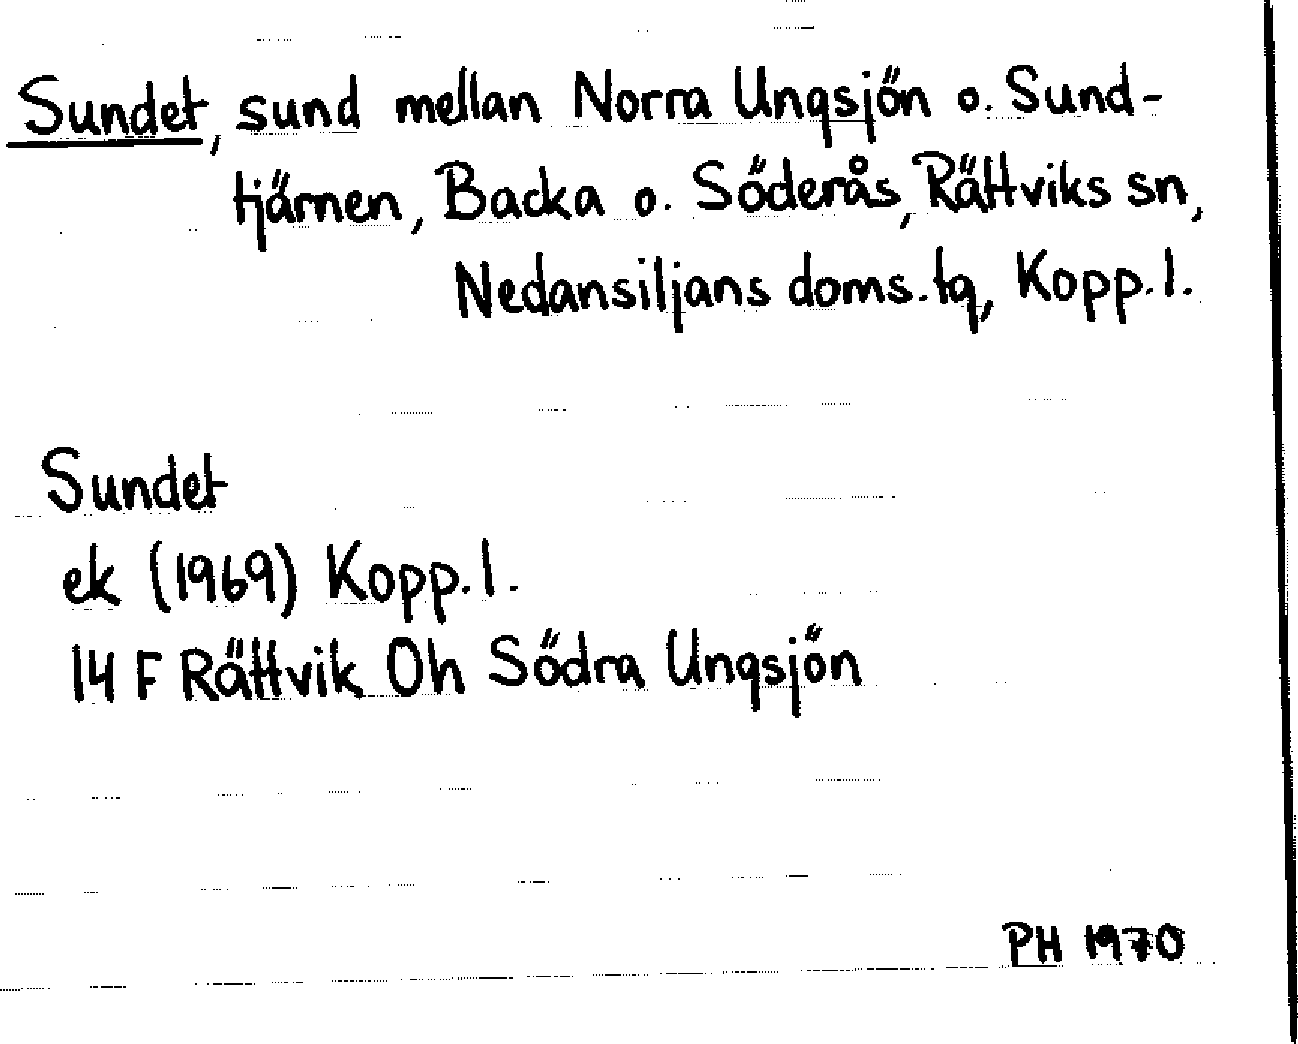 Sundet, sund mellan Norra Ungsjön o. Sund-
tjärnen, Backa o. Söderås, Rättviks sn,
Nedansiljans doms.tg, Kopp.l.
Sundet
ek (1969) Kopp.l.
14 F Rättvik Oh Södra Ungsjön
PH 1970